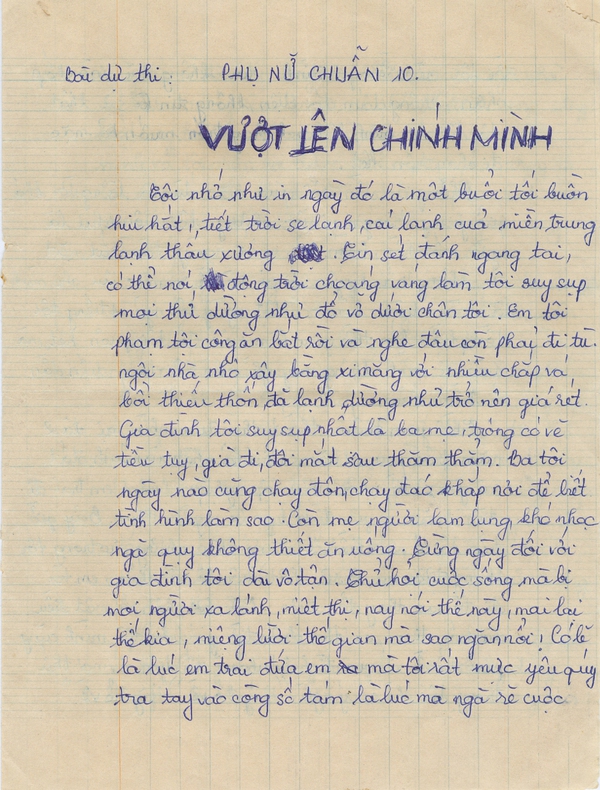 Bài dự thi: PHỤ NỮ CHUẨN 10.
VƯỢT LÊN CHÍNH MÌNH
Tôi nhớ như in ngày đó là một buổi tối buồn
hiu hắt, tiết trời se lạnh, cái lạnh của miền trung
lạnh thấu xương. Tin sét đánh ngang tai,
có thể nói động trời choáng váng làm tôi suy sụp
mọi thứ dường như đổ vỡ dưới chân tôi. Em tôi
phạm tội công an bắt rồi và nghe đâu còn phải đi tù.
ngôi nhà nhỏ xây bằng ximăng với nhiều chắp vá
bởi thiếu thốn, đã lạnh dường như trở nên giá rét.
Gia đình tôi suy sụp nhất là ba mẹ, trông có vẻ
tiều tụy, già đi, đôi mắt sâu thăm thẳm. Ba tôi
ngày nào cũng chạy đôn, chạy đáo khắp nơi để biết
tình hình làm sao. Còn mẹ người lam lụng khó nhọc
ngã quỵ không thiết ăn uống. Từng ngày đối với
gia đình tôi dài vô tận. Thử hỏi cuộc sống mà bị
mọi người xa lánh, miệt thị, nay nói thế này, mai lại
thế kia, miệng lưỡi thế gian mà sao ngăn nổi! Có lẽ
là lúc em trai đứa em mà tôi rất mực yêu quý
tra tay vào còng số tám là lúc mà ngã rẽ cuộc